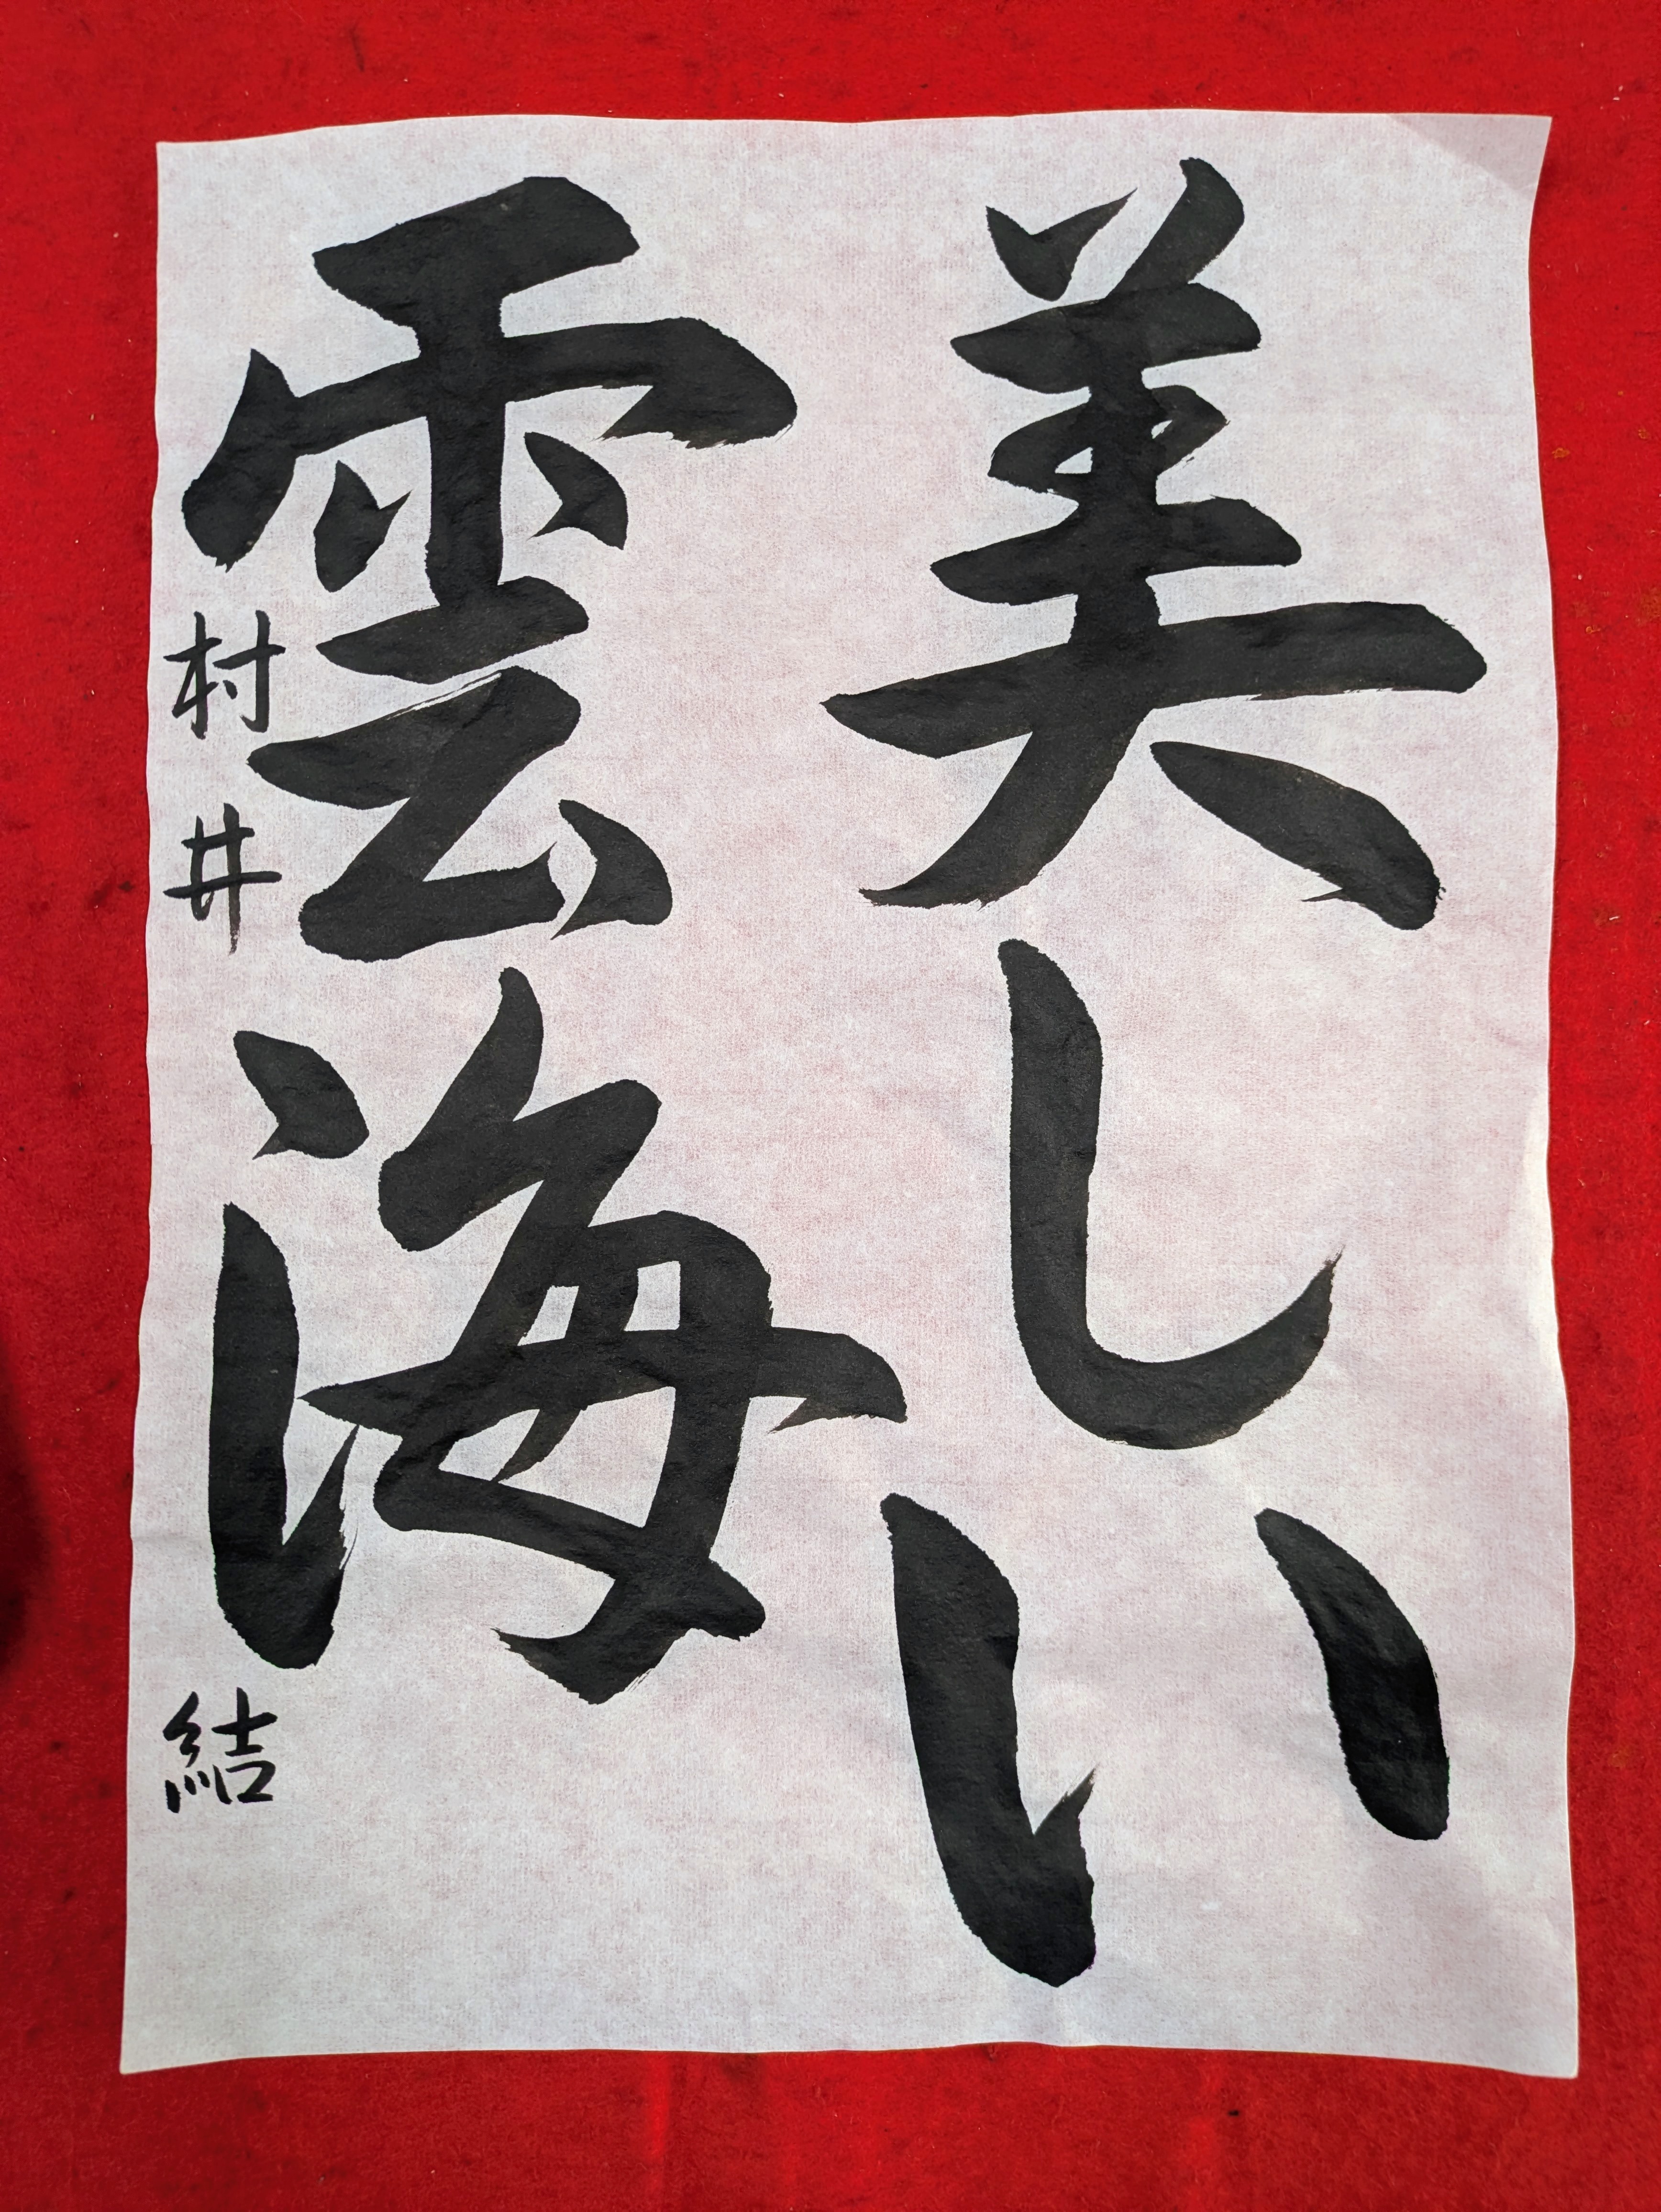 美しい
雲海
村井 結